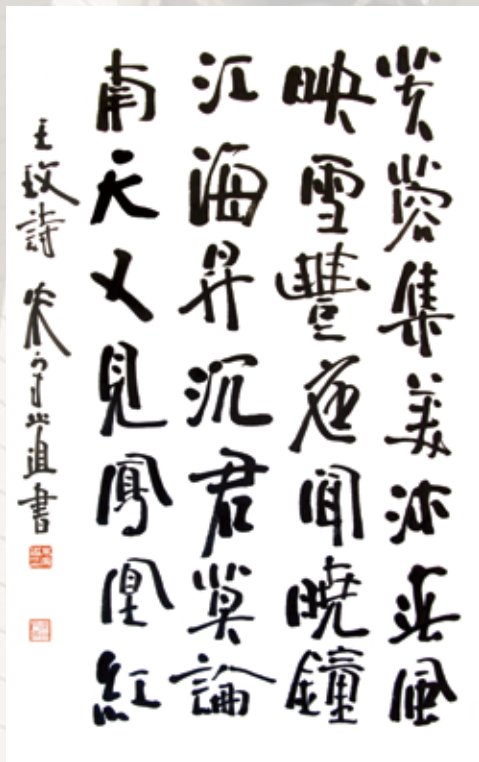 芙蓉集美沐春風
映雪豐庭聞曉鐘
江海昇沉君莫論
南天又見鳳凰紅
王玫詩 朱守道書